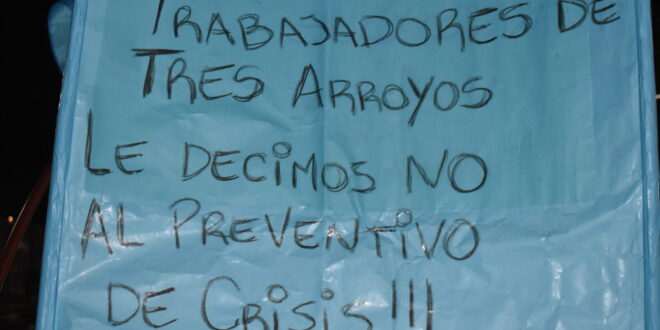 TRABAJADORES DE
TRES ARROYOS
LE DECIMOS NO
AL PREVENTIVO
DE CRISIS!!!